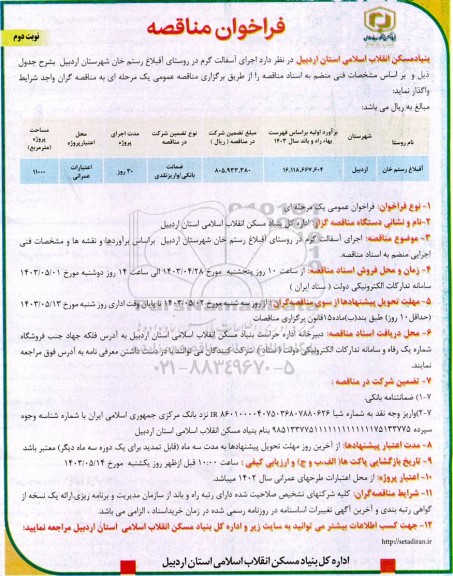 فراخوان مناقصه
نوبت دوم
بنیادمسکن انقلاب اسلامی استان اردبیل در نظر دارد اجرای آسفالت گرم در روستای آقبلاغ رستم خان شهرستان اردبیل بشرح جدول
ذیل و بر اساس مشخصات فنی منضم به اسناد مناقصه را از طریق برگزاری مناقصه عمومی یک مرحله ای به مناقصه گران واجد شرایط
واگذار نماید:
مبالغ به ریال می باشد:
نام روستا	شهرستان	برآورد اولیه براساس فهرست بهاء راه و باند سال ۱۴۰۳	مبلغ تضمین شرکت در مناقصه ( ریال )	نوع تضمین شرکت در مناقصه	مدت اجرای پروژه	محل اعتبارپروژه	مساحت پروژه (مترمربع)
آقبلاغ رستم خان	اردبیل	۱۶،۱۱۸،۶۶۷،۶۰۴	۸۰۵،۹۳۳،۳۸۰	ضمانت بانکی/واریزنقدی	۳۰ روز	اعتبارات عمرانی	۱۱۰۰۰
۱- نوع فراخوان: فراخوان عمومی یک مرحله ای
۲-نام و نشانی دستگاه مناقصه گزار: اداره کل بنیاد مسکن انقلاب اسلامی استان اردبیل
۳- موضوع مناقصه: اجرای آسفالت گرم در روستای آقبلاغ رستم خان شهرستان اردبیل براساس برآوردها و نقشه ها و مشخصات فنی
اجرایی منضم به اسناد مناقصه.
۴- زمان و محل فروش اسناد مناقصه: از ساعت ۱۰ روز پنجشنبه مورخ ۱۴۰۳/۰۴/۲۸ الی ساعت ۱۴ روز دوشنبه مورخ ۱۴۰۳/۰۵/۰۱
سامانه تدارکات الکترونیکی دولت ( ستاد ایران )
۵- مهلت تحویل پیشنهادها از سوی مناقصه‌گران : از روز سه شنبه مورخ ۱۴۰۳/۰۵/۰۲ تا پایان وقت اداری روز شنبه مورخ ۱۴۰۳/۰۵/۱۳
(حداقل ۱۰ روز) طبق بند(ب)ماده۱۵قانون برگزاری مناقصات
۶- محل دریافت اسناد مناقصه: دبیرخانه اداره حراست بنیاد مسکن انقلاب اسلامی استان اردبیل به آدرس فلکه جهاد جنب فروشگاه
شماره یک رفاه و سامانه تدارکات الکترونیکی دولت ( ستاد ) شرکت کنندگان می توانند با در دست داشتن معرفی نامه به آدرس فوق مراجعه
نمایند.
۷- تضمین شرکت در مناقصه :
۷-۱) ضمانتنامه بانکی.
۷-۲)واریز وجه نقد به شماره شبا IR ۸۶۰۱۰۰۰۰۴۰۷۵۰۳۶۸۰۷۸۸۰۶۲۶ نزد بانک مرکزی جمهوری اسلامی ایران با شماره شناسه وجوه
سپرده بنام بنیاد مسکن انقلاب اسلامی استان اردبیل
۸- مدت اعتبار پیشنهادها: از آخرین روز مهلت تحویل پیشنهادها به مدت سه ماه (قابل تمدید برای یک دوره سه ماه دیگر) معتبر باشد
۹- تاریخ بازگشایی پاکت ها( الف،ب و ج) و ارزیابی کیفی : ساعت ۱۰:۰۰ قبل ازظهر روز یکشنبه مورخ ۱۴۰۳/۰۵/۱۴
۱۰- اعتبار پروژه: از محل اعتبارات طرحهای عمرانی سال ۱۴۰۲ میباشد.
۱۱- شرایط مناقصه‌گران: کلیه شرکتهای تشخیص صلاحیت شده دارای رتبه راه و باند از سازمان مدیریت و برنامه ریزی،ارائه یک نسخه از
گواهی رتبه بندی و آخرین آگهی تغییرات اساسنامه در روزنامه رسمی شده در زمان خریداسناد ، الزامی می باشد.
۱۲- جهت کسب اطلاعات بیشتر می توانید به سایت زیر و اداره کل بنیاد مسکن انقلاب اسلامی استان اردبیل مراجعه نمایید:
http://setadiran.ir
اداره کل بنیاد مسکن انقلاب اسلامی استان اردبیل
۰۲۱-۸۸۳۴۹۶۷۰-۵